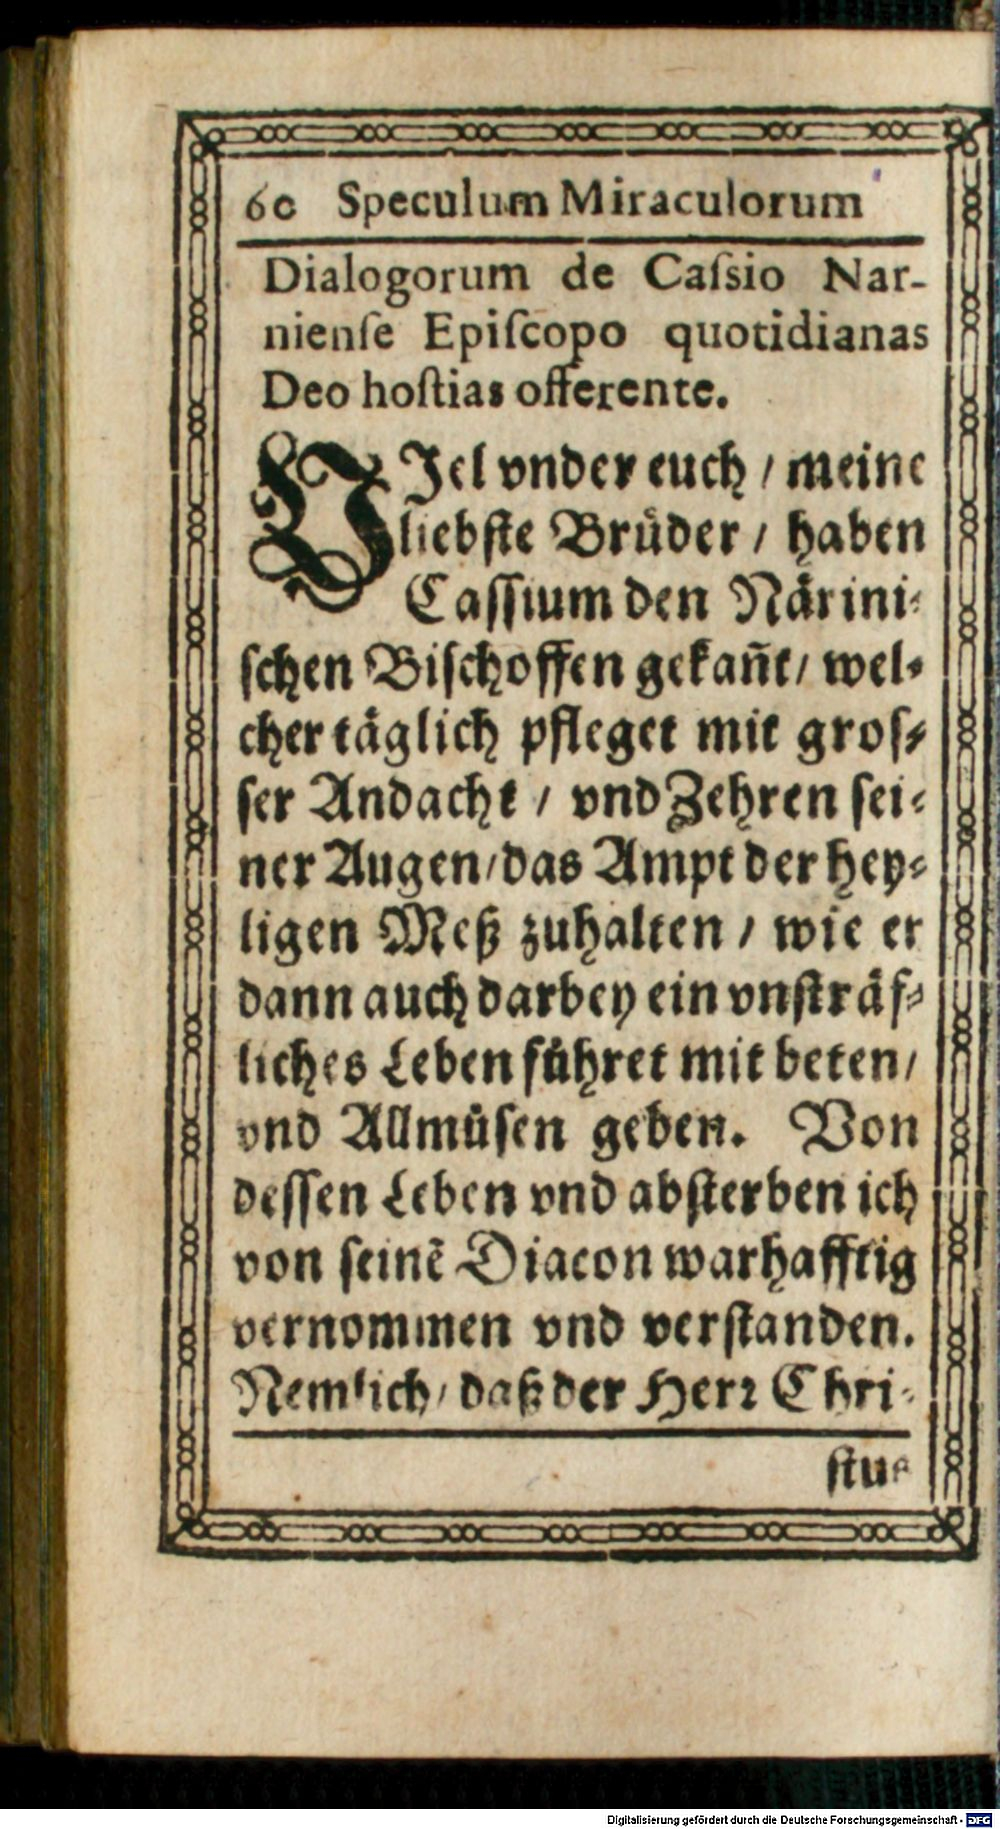 60 Speculum Miraculorum
Dialogorum de Caſsio Nar-
nienſe Epiſcopo quotidianas
Deo hoſtias offerente.
VJel vnder euch / meine
liebſte Bruͤder / haben
Caſſium den Naͤrini-
ſchen Biſchoffen gekañt / wel-
cher taͤglich pfleget mit groſ-
ſer Andacht / vnd Zehren ſei-
ner Augen / das Ampt der hey-
ligen Meß zuhalten / wie er
dann auch darbey ein vnſtraͤf-
liches Leben fuͤhret mit beten /
vnd Allmuͤſen geben. Von
deſſen Leben vnd abſterben ich
von ſeinẽ Diacon warhafftig
vernommen vnd verſtanden.
Nemlich / daß der Herꝛ Chri-
ſtus
Digitalisierung gefördert durch die Deutsche Forschungsgemeinschaft - DFG